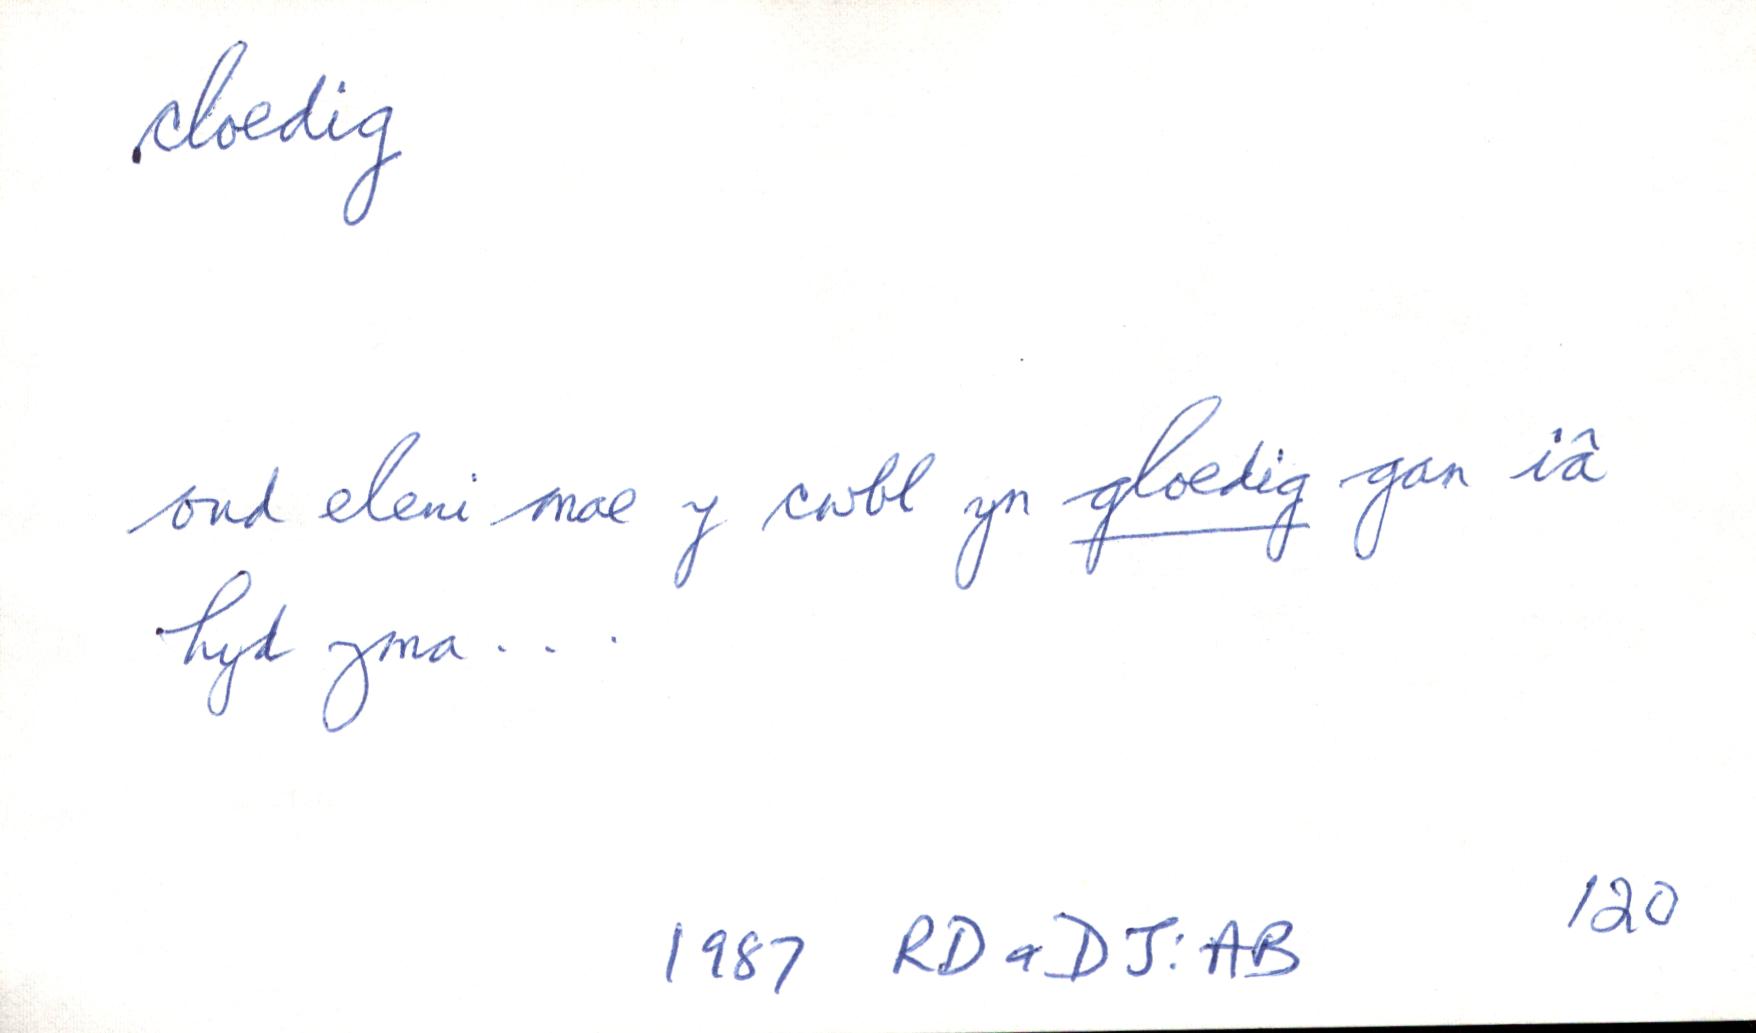 cloedig
ond eleni mae y cwbl yn gloedig gan iâ
hyd yma . . .
1987 RD a DJ: AB 120